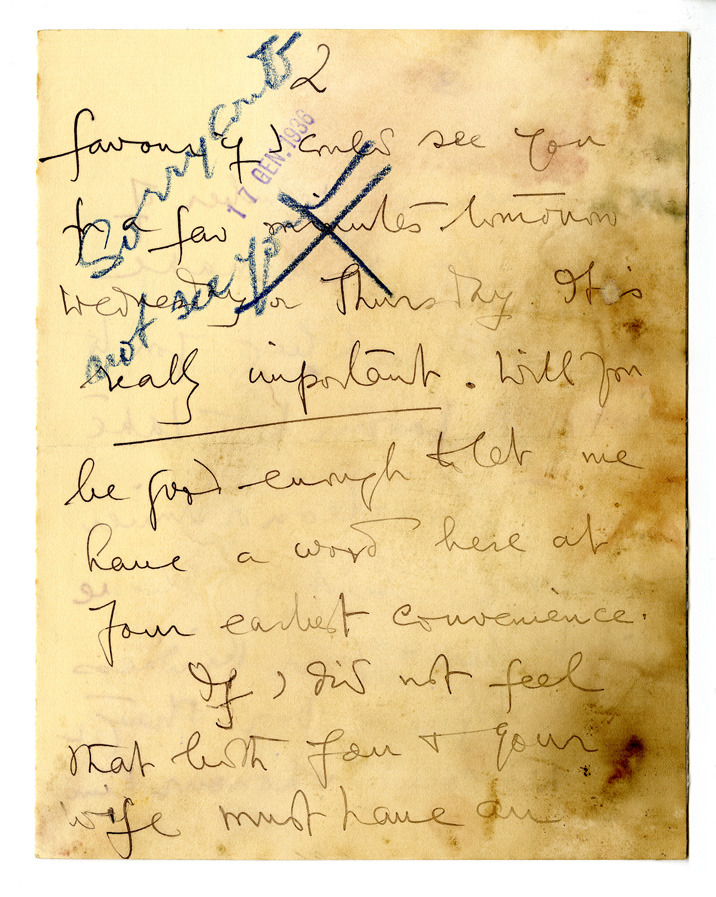 2
favour if I could see you
for a few minutes tomorrow
Wednesday or Thursday. It is
really important. Will you
be good enough to let me
have a word here at
your earliest convenience.
If I did not feel
that both you + your
wife must have an
Sorry could
not see you
17 GEN. 1936